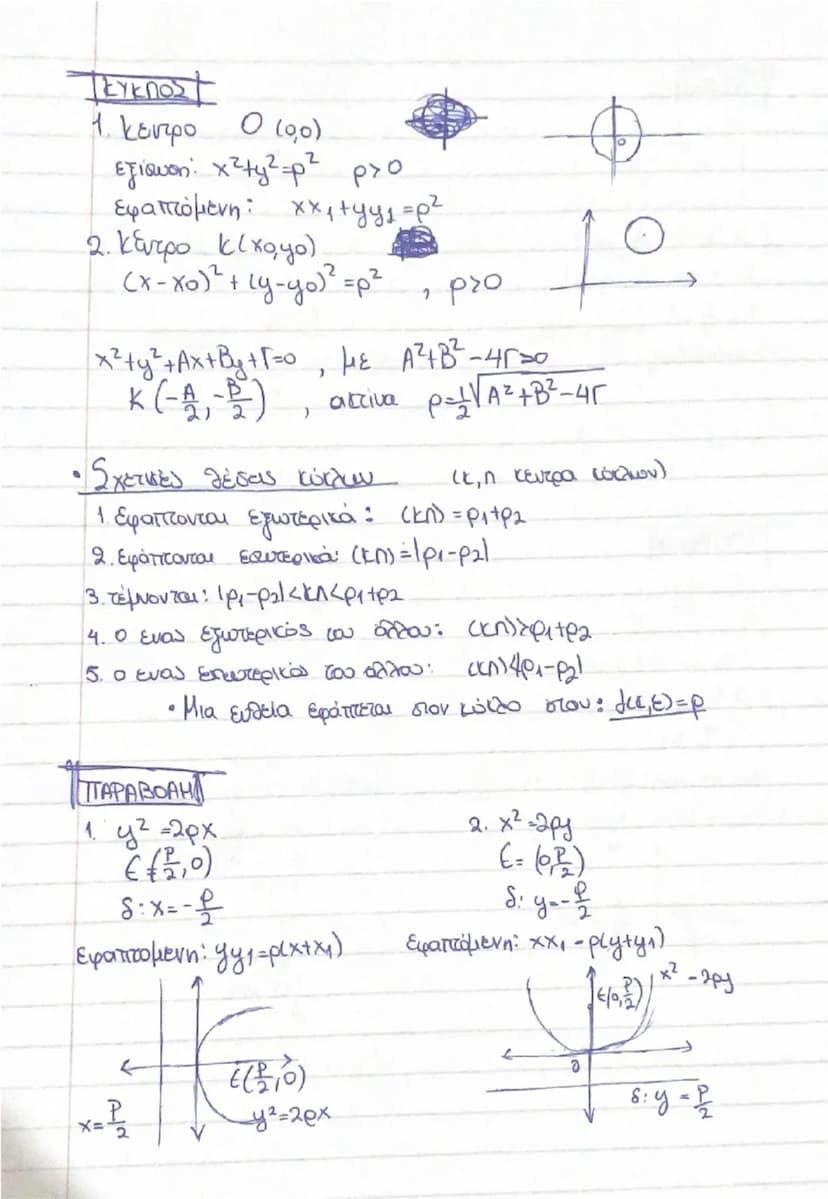 ΚΥΚΛΟΣ
1. κέντρο O (0,0)
εξίσωση: x²+y²=ρ² ρ>0
εφαπτόμενη: xx₁+yy₁=ρ²
2. κέντρο K(x0,y0)
(x-x0)²+(y-y0)²=ρ² , ρ>0
x²+y²+Ax+By+Γ=0 , με A²+B²-4Γ>0
K(-A/2, -B/2) , ακτίνα ρ=1/2√A²+B²-4Γ
• Σχετικές θέσεις κύκλων (κ,λ κεντρα κύκλων)
1. Εφαπτονται εξωτερικά: (κλ)=ρ₁+ρ₂
2. Εφάπτονται εσωτερικά: (κλ)=|ρ₁-ρ₂|
3. τέμνονται: |ρ₁-ρ₂|<κλ<ρ₁+ρ₂
4. ο ενας εξωτερικός του άλλου: (κλ)>ρ₁+ρ₂
5. ο ενας εσωτερικός του αλλου: (κλ)<|ρ₁-ρ₂|
• Μια ευθεία εφάπτεται στον κύκλο οταν: d(κ,ε)=ρ
ΠΑΡΑΒΟΛΗ
1. y²=2px 2. x²=2py
E=(p/2,0) E=(0,p/2)
δ: x=-p/2 δ: y=-p/2
Εφαπτομενη: yy₁=p(x+x₁) Εφαπτόμενη: xx₁=p(y+y₁)
E(0,p/2) x²=2py
E(p/2,0) 0
x=p/2 y²=2px δ: y=p/2